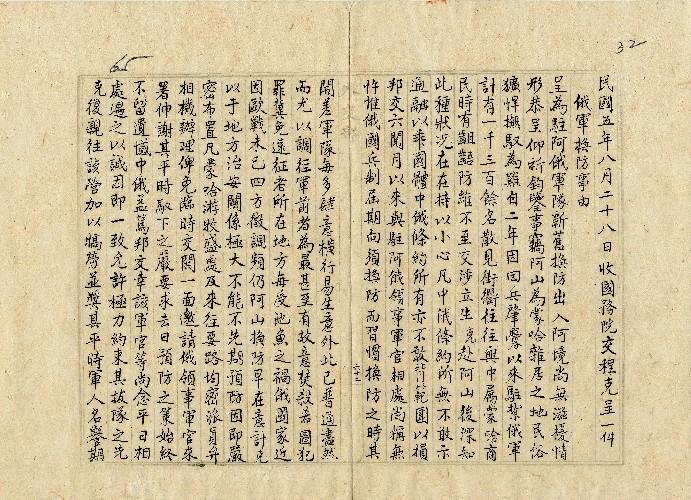 32
民國五年八月二十八日收國務院交程克呈一件
俄軍換防事由
呈為駐阿俄軍隊新舊換防出入阿境尚無滋擾情
形恭呈仰祈鈞鑒事竊阿山為蒙哈雜居之地民俗
獷悍撫馭為難自二年因回兵肇釁以來駐紮俄軍
計有一千三百餘名散見街衢往往與中屬蒙哈商
民時有齟齬防維不至交涉立生克赴阿山後深知
此種狀況在在持以小心凡中俄條約所無不敢亦
通融以乖國體中俄條約所有亦不敢背範圍以損
邦交六閱月以來與駐阿俄領事軍官相處尚稱無
忤惟俄國兵制屆期向須換防而習慣換防之時其
六十二
65
開差軍隊每多肆意橫行易生意外此已普通盡然
而尤以調往軍前者為最甚至有故意焚殺者圖犯
罪冀免遠征者所在地方每受池魚之禍俄國家近
因歐戰未已四方徵調頻仍阿山換防早在意計克
以于地方治安關係極大不能不先期預防因即嚴
密布置凡蒙哈游牧盛處及來往要路均密派員弁
相機辦理俾免臨時交鬨一面邀請俄領事軍官來
署伸謝其平時馭下之嚴要求去日預防之策始終
不留遺憾中俄益篤邦交幸該軍官等尚念平日相
處遇之以誠因即一致允許極力約束其拔隊之先
克復親往該營加以犒勞並獎其平時軍人名譽期